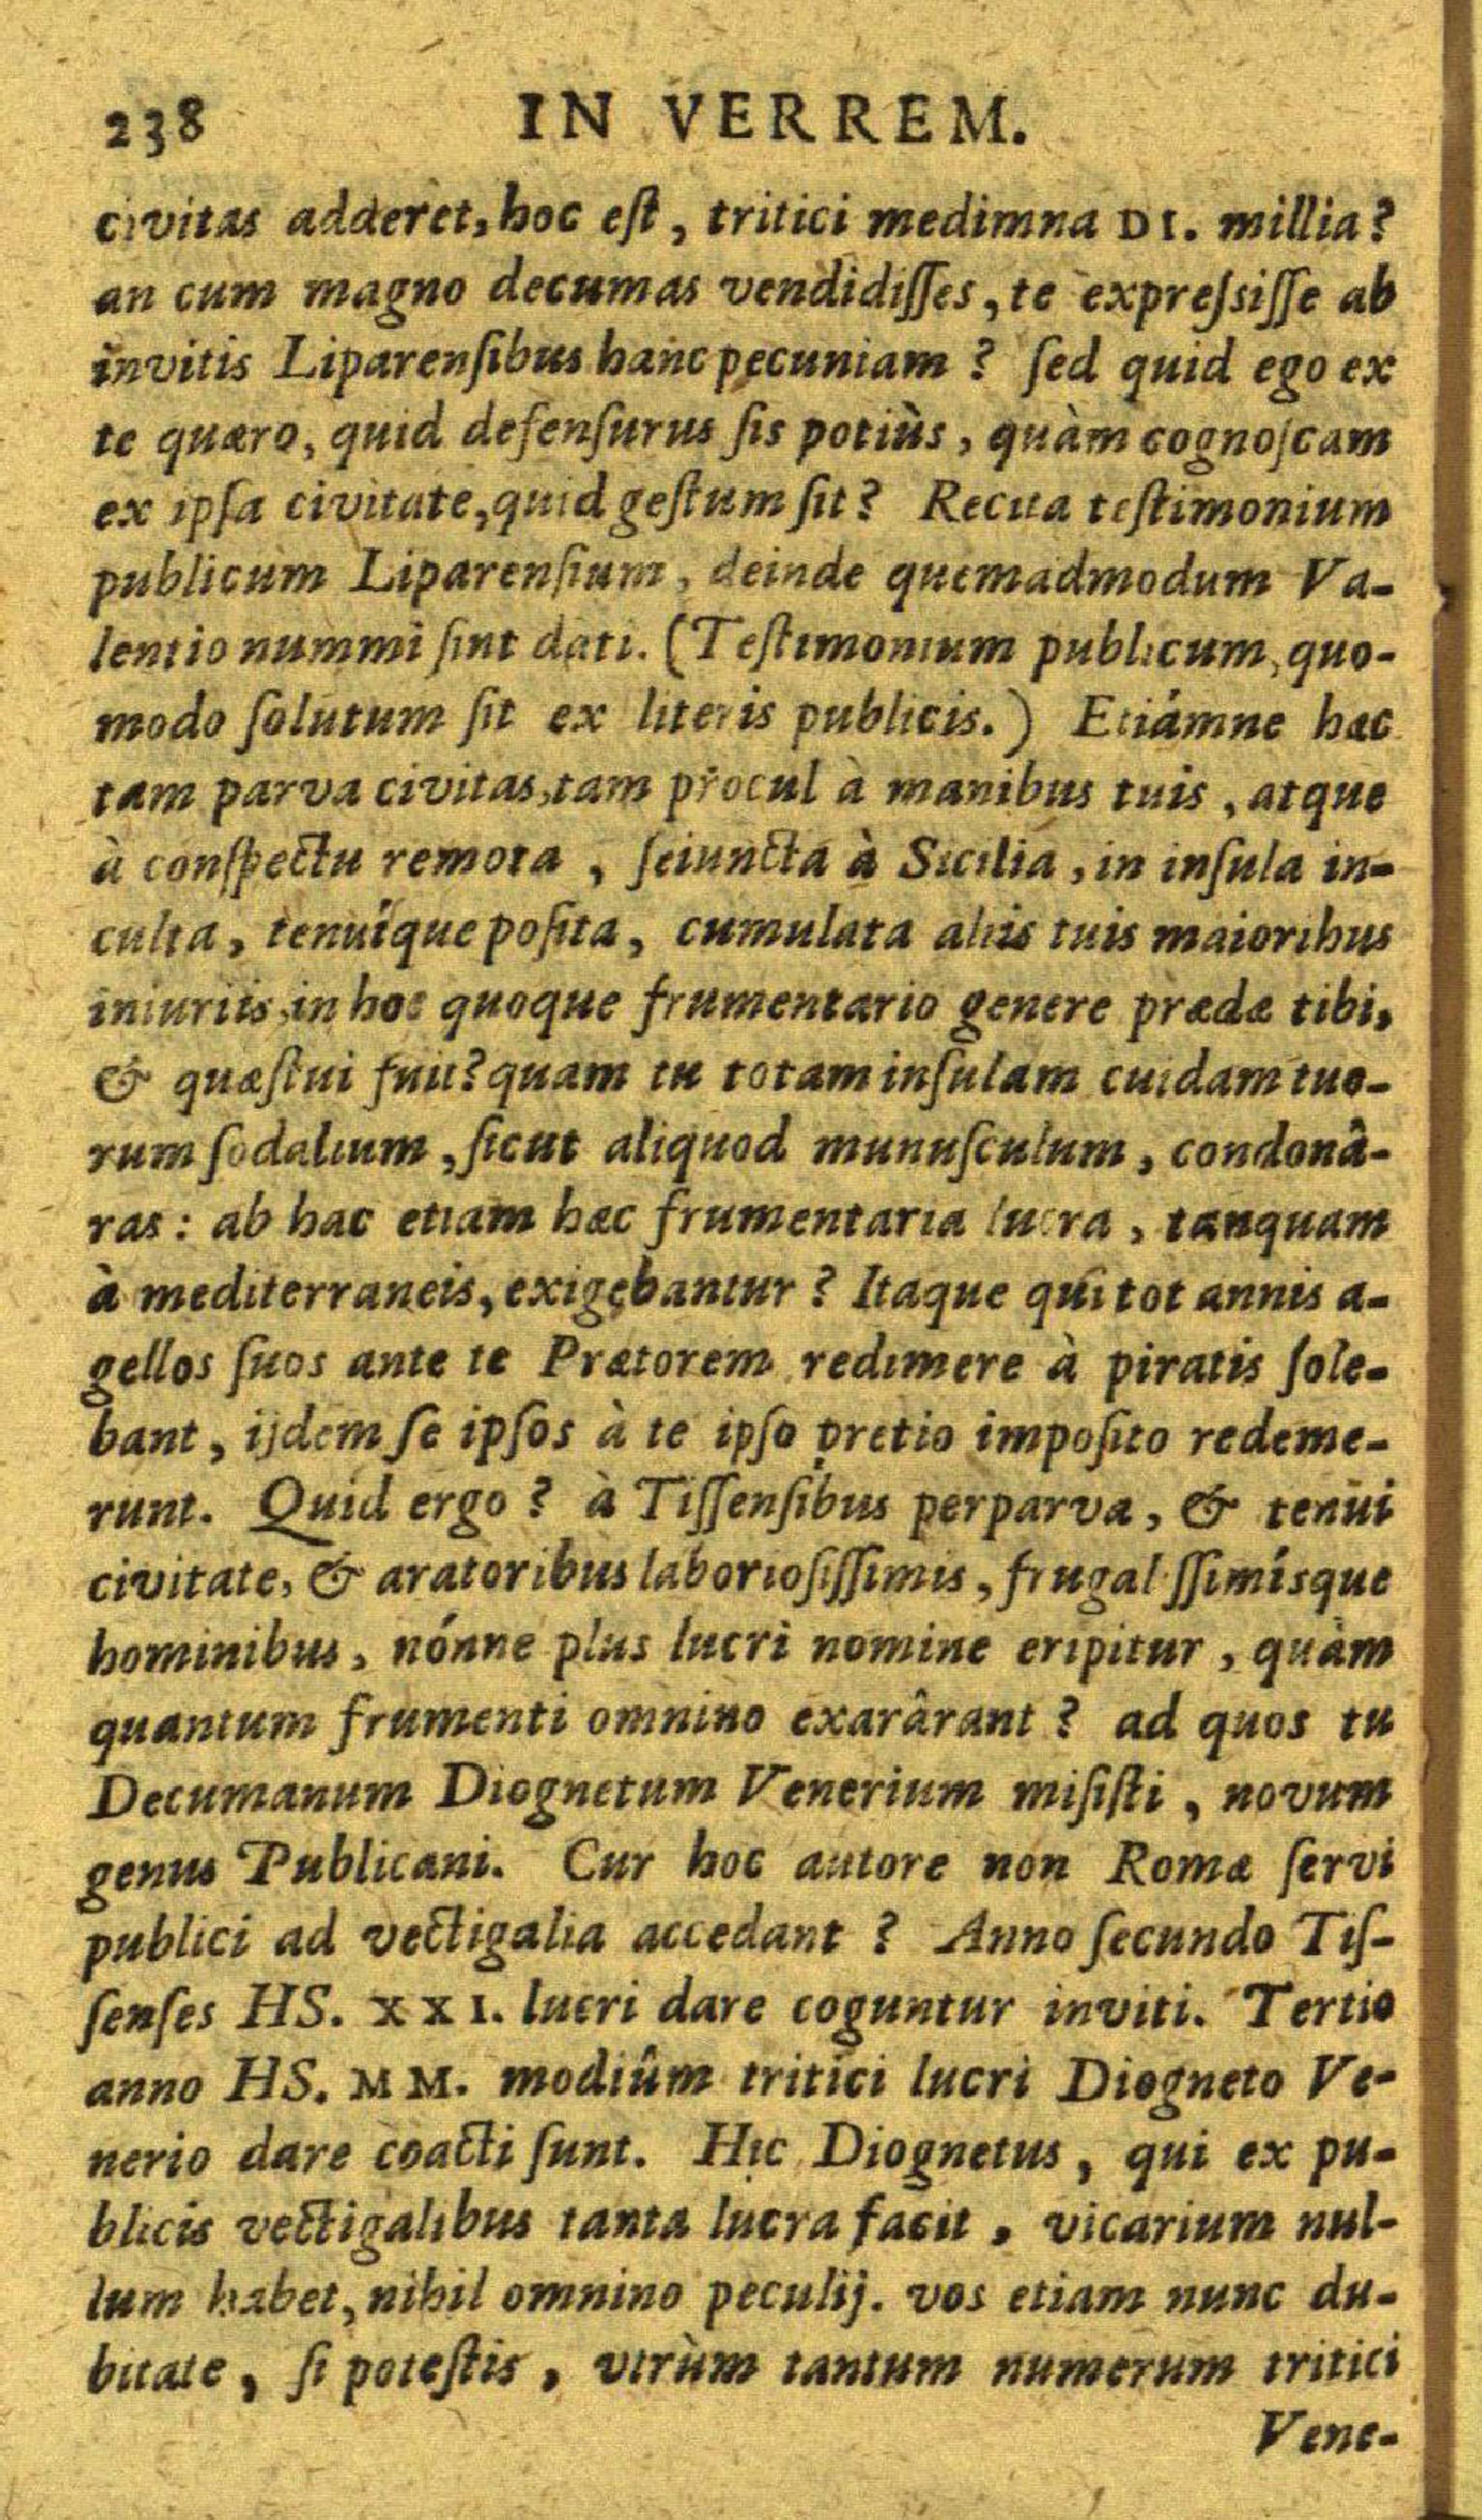 238 IN VERREM.
civitas adderet, hoc eſt, tritici medimna DI. millia?
an cum magno decumas vendidiſſes, te expreſsiſſe ab
invitis Liparenſibus hanc pecuniam? ſed quid ego ex
te quæro, quid defenſurus ſis potiùs, quàm cognoſcam
ex ipſa civitate, quid geſtum ſit? Recita teſtimonium
publicum Liparenſium, deinde quemadmodum Va-
lentio nummi ſint dati. (Teſtimonium publicum, quo-
modo ſolutum ſit ex literis publicis.) Etiámne hæc
tam parva civitas, tam procul à manibus tuis, atque
à conſpectu remota, ſeiuncta à Sicilia, in inſula in-
culta, tenuíque poſita, cumulata aliis tuis maioribus
iniuriis, in hoc quoque frumentario genere prædæ tibi,
& quæſtui fuit? quam tu totam inſulam cuidam tuo-
rum ſodalium, ſicut aliquod munuſculum, condonâ-
ras: ab hac etiam hæc frumentaria lucra, tanquam
à mediterraneis, exigebantur? Itaque qui tot annis a-
gellos ſuos ante te Prætorem redimere à piratis ſole-
bant, ijdem ſe ipſos à te ipſo pretio impoſito redeme-
runt. Quid ergo? à Tiſſenſibus perparva, & tenui
civitate, & aratoribus laborioſiſſimis, frugaliſſimíſque
hominibus, nónne plus lucri nomine eripitur, quàm
quantum frumenti omnino exarârant? ad quos tu
Decumanum Diognetum Venerium miſiſti, novum
genus Publicani. Cur hoc autore non Romæ ſervi
publici ad vectigalia accedant? Anno ſecundo Tiſ-
ſenſes HS. XXI. lucri dare coguntur inviti. Tertio
anno HS. MM. modiûm tritici lucri Diogneto Ve-
nerio dare coacti ſunt. Hic Diognetus, qui ex pu-
blicis vectigalibus tanta lucra facit, vicarium nul-
lum habet, nihil omnino peculij. vos etiam nunc du-
bitate, ſi poteſtis, vtrùm tantum numerum tritici
Vene-